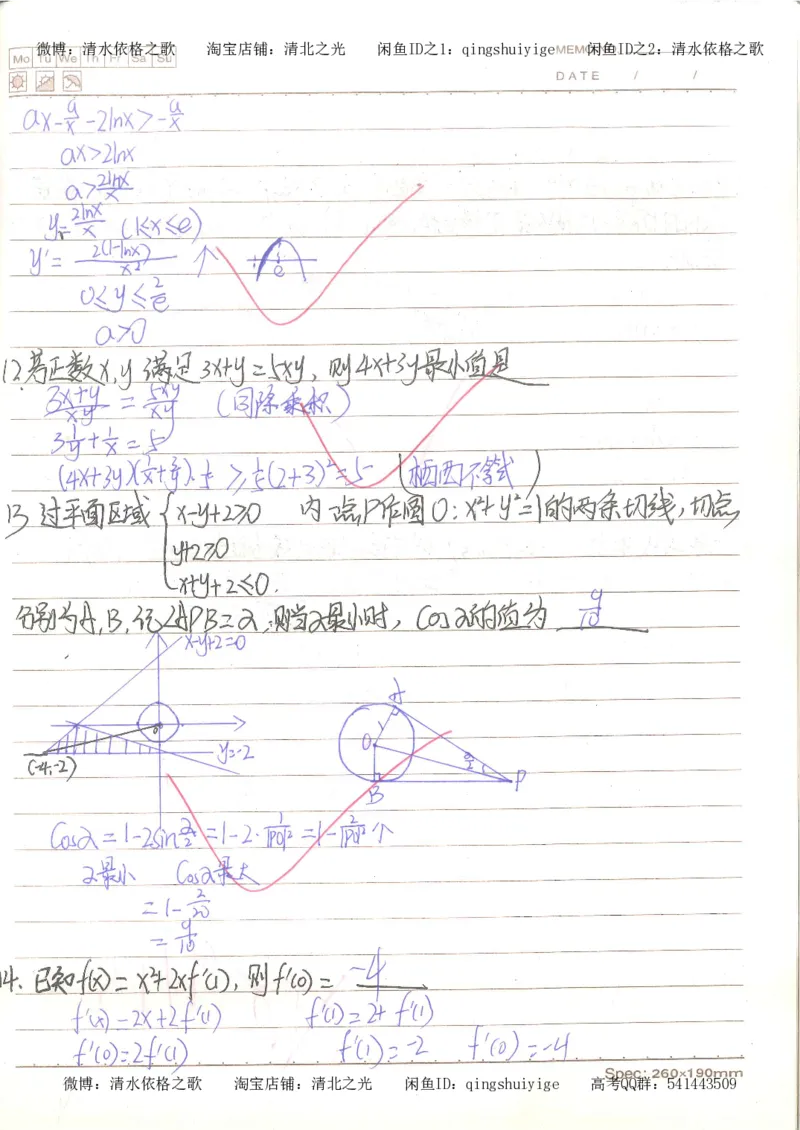 微博：清水依格之歌 淘宝店铺：清北之光 闲鱼ID之1：qingshuiyige 闲鱼ID之2：清水依格之歌
Mo Tu We Th Fr Sa Su MEMO
DATE / /
ax-a/x-2lnx>-a/x
ax>2lnx
a>2lnx/x
y=2lnx/x (1≤x≤e)
y'=2(1-lnx)/x² ↑
e
0≤y≤2/e
a>0
12.若正数x,y满足3x+y=5xy，则4x+3y最小值是
3x+y/xy=5xy/xy (同除乘积)
3 1/y+1/x=5
(4x+3y)(1/x+3/y)·1/5≥1/5(2+3)²=5 (柯西不等式)
13 过平面区域{x-y+2≥0 内一点P作圆O:x²+y²=1的两条切线，切点
y+2≥0
x+y+2≤0.
分别为A,B,记∠APB=α,则当α最小时，cosα的值为 9/10
x-y+2=0
A
O
y=-2
(-4,-2)
α/2
P
B
cosα=1-2sin²α/2=1-2·1/|PO|²=1-2/|PO|²↑
α最小 cosα最大
=1-2/20
=9/10
14.已知f(x)=x²+2xf'(1),则f'(0)= -4
f'(x)=2x+2f'(1) f'(1)=2+f'(1)
f'(0)=2f'(1) f'(1)=-2 f'(0)=-4
Spec: 260×190mm
微博：清水依格之歌 淘宝店铺：清北之光 闲鱼ID：qingshuiyige 高考QQ群：541443509